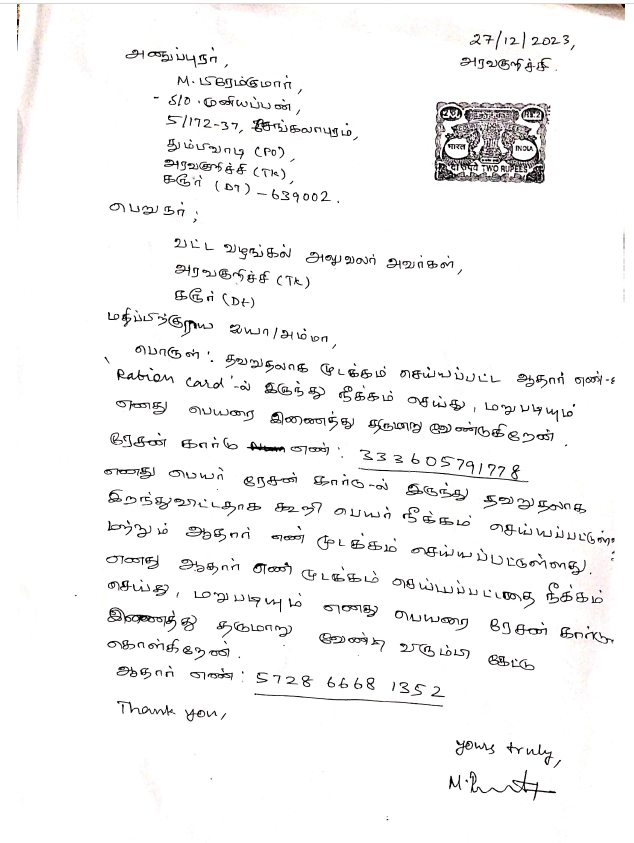 27/12/2023,
அரவகுறிச்சி.
அனுப்புநர்,
M. பிரேம்குமார்,
S/O. முனியப்பன்,
5/172-37, வேங்கலாபுரம்,
தும்பிவாடி (PO),
அரவகுறிச்சி (TK),
கரூர் (DT) - 639002.
भारत INDIA
TWO RUPEES
பெறுநர்;
வட்ட வழங்கல் அலுவலர் அவர்கள்,
அரவகுறிச்சி (TK)
கரூர் (Dt)
மதிப்பிற்குரிய ஐயா/அம்மா,
பொருள்: தவறுதலாக முடக்கம் செய்யப்பட்ட ஆதார் எண்-
'Ration Card'-ல் இருந்து நீக்கம் செய்து, மறுபடியும்
எனது பெயரை இணைத்து தருமாறு வேண்டுகிறேன்.
ரேசன் கார்டு எண்: 333605791778
எனது பெயர் ரேசன் கார்டு-ல் இருந்து தவறுதலாக
இறந்துவிட்டதாக கூறி பெயர் நீக்கம்
மற்றும் ஆதார் எண் முடக்கம் செய்யப்பட்டுள்ளது.
எனது ஆதார் எண் முடக்கம் செய்யப்பட்டதை நீக்கம்
செய்து, மறுபடியும் எனது பெயரை ரேசன்
இணைத்து தருமாறு கேட்டு
கொள்கிறேன்.
ஆதார் எண்: 5728 6668 1352
Thank you,
yours truly,